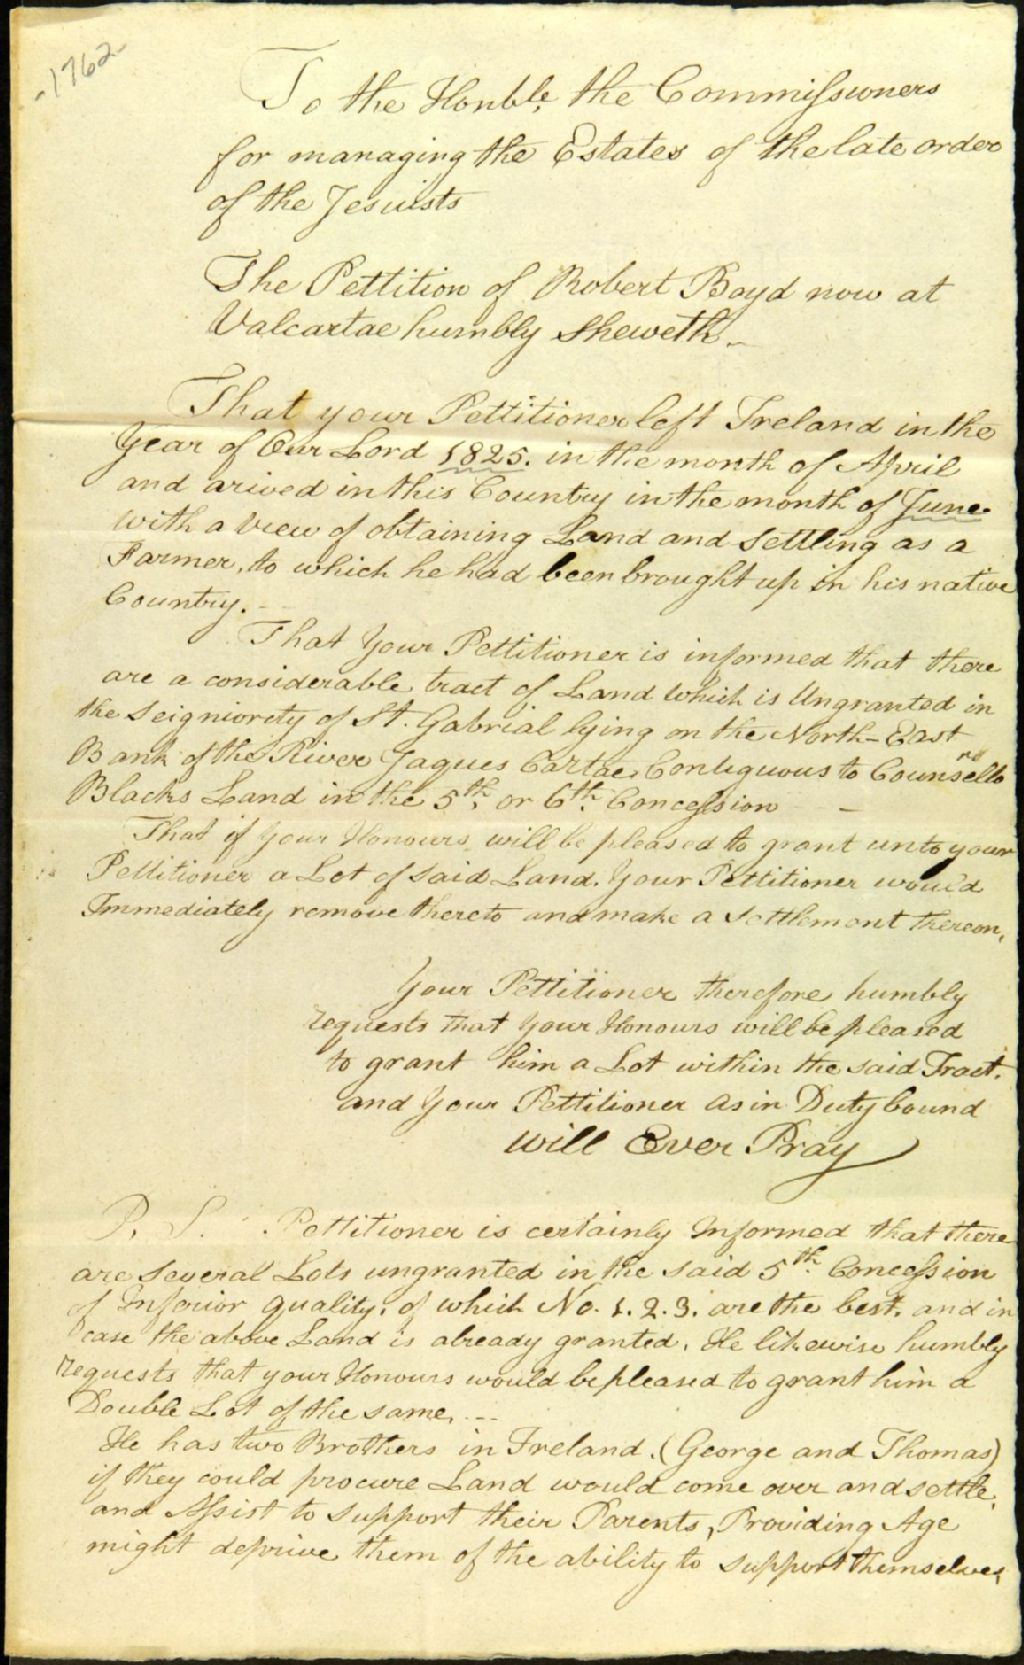 -1762-
To the Honble. the Commissioners
for managing the Estates of the late order
of the Jesuists
The Pettition of Robert Boyd now at
Valcartae humbly Sheweth_
That your Pettitioner left Ireland in the
Year of Our Lord 1825. in the month of April
and arived in this Country in the month of June.
with a view of obtaining Land and Settling as a
Farmer, to which he had been brought up in his native
Country.
That Your Pettitioner is informed that there
are a considerable tract of Land which is Ungranted in
the Seigniority of St. Gabrial lying on the North-East
Bank of the River Jaques Cartae, Contiguous to Counsello
Blacks Land in the 5th. or 6th. Concession —
That if Your Honours, will be pleased to grant unto your
Pettitioner a Lot of said Land. Your Pettitioner would
Immediately remove thereto and make a Settlement thereon,
Your Pettitioner therefore humbly
requests that Your Honours will be pleased
to grant him a Lot within the said Tract.
and Your Pettitioner as in Duty bound
Will Ever Pray
P. S. Pettitioner is certainly Informed that there
are Several Lots ungranted in the said 5th. Concession
of Inferior quality, of which No. 1. 2. 3. are the best. and in
case the above Land is already granted. He likewise humbly
requests that your Honours would be pleased to grant him a
Double Lot of the same, ---
He has two Brothers in Ireland. (George and Thomas)
if they could procure Land would come over and settle,
and Assist to support their Parents, Providing Age
might deprive them of the ability to support themselves,